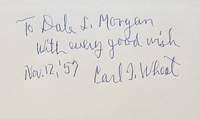 To Dale L. Morgan
with every good wish
Nov. 12, '57 Carl I. Wheat